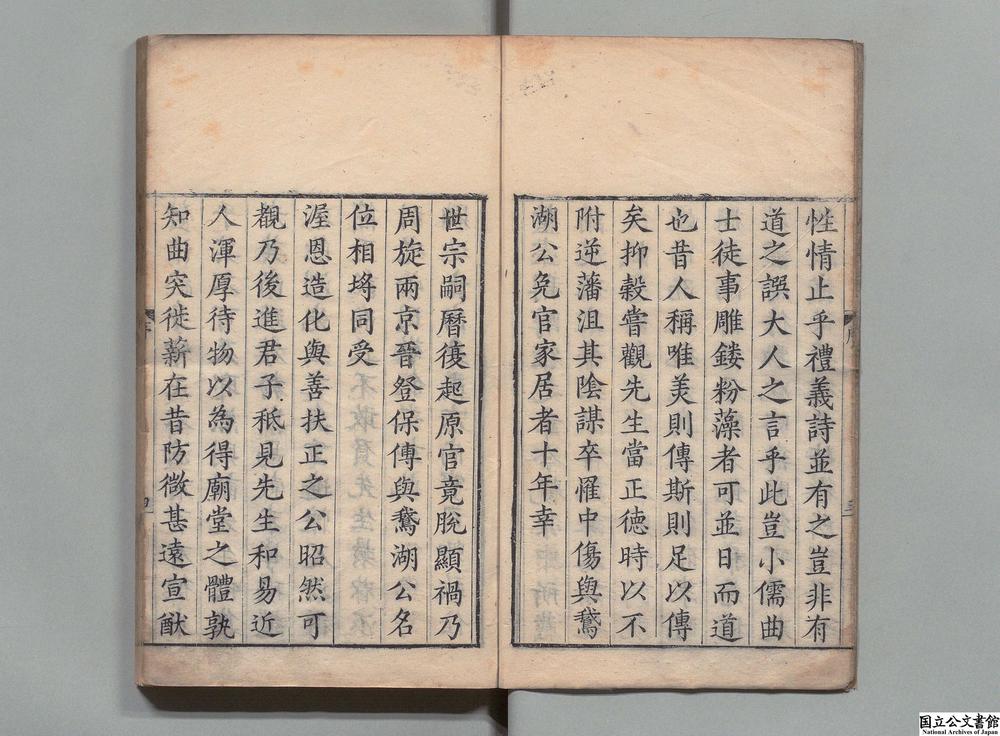 性情止乎禮義詩並有之豈非有
道之誤大人之言乎此豈小儒曲
士徒事雕鏤粉藻者可並日而道
也昔人稱唯美則傳斯則足以傳
矣抑穀嘗觀先生當正德時以不
附逆藩沮其陰謀卒罹中傷與鵞
湖公免官家居者十年幸
世宗嗣曆復起原官竟脫顯禍乃
周旋兩京晉登保傅與鵞湖公名
位相埒同受
渥恩造化與善扶正之公昭然可
覩乃後進君子秖見先生和易近
人渾厚待物以為得廟堂之體孰
知曲突徙薪在昔防微甚遠宣猷
国立公文書館
National Archives of Japan